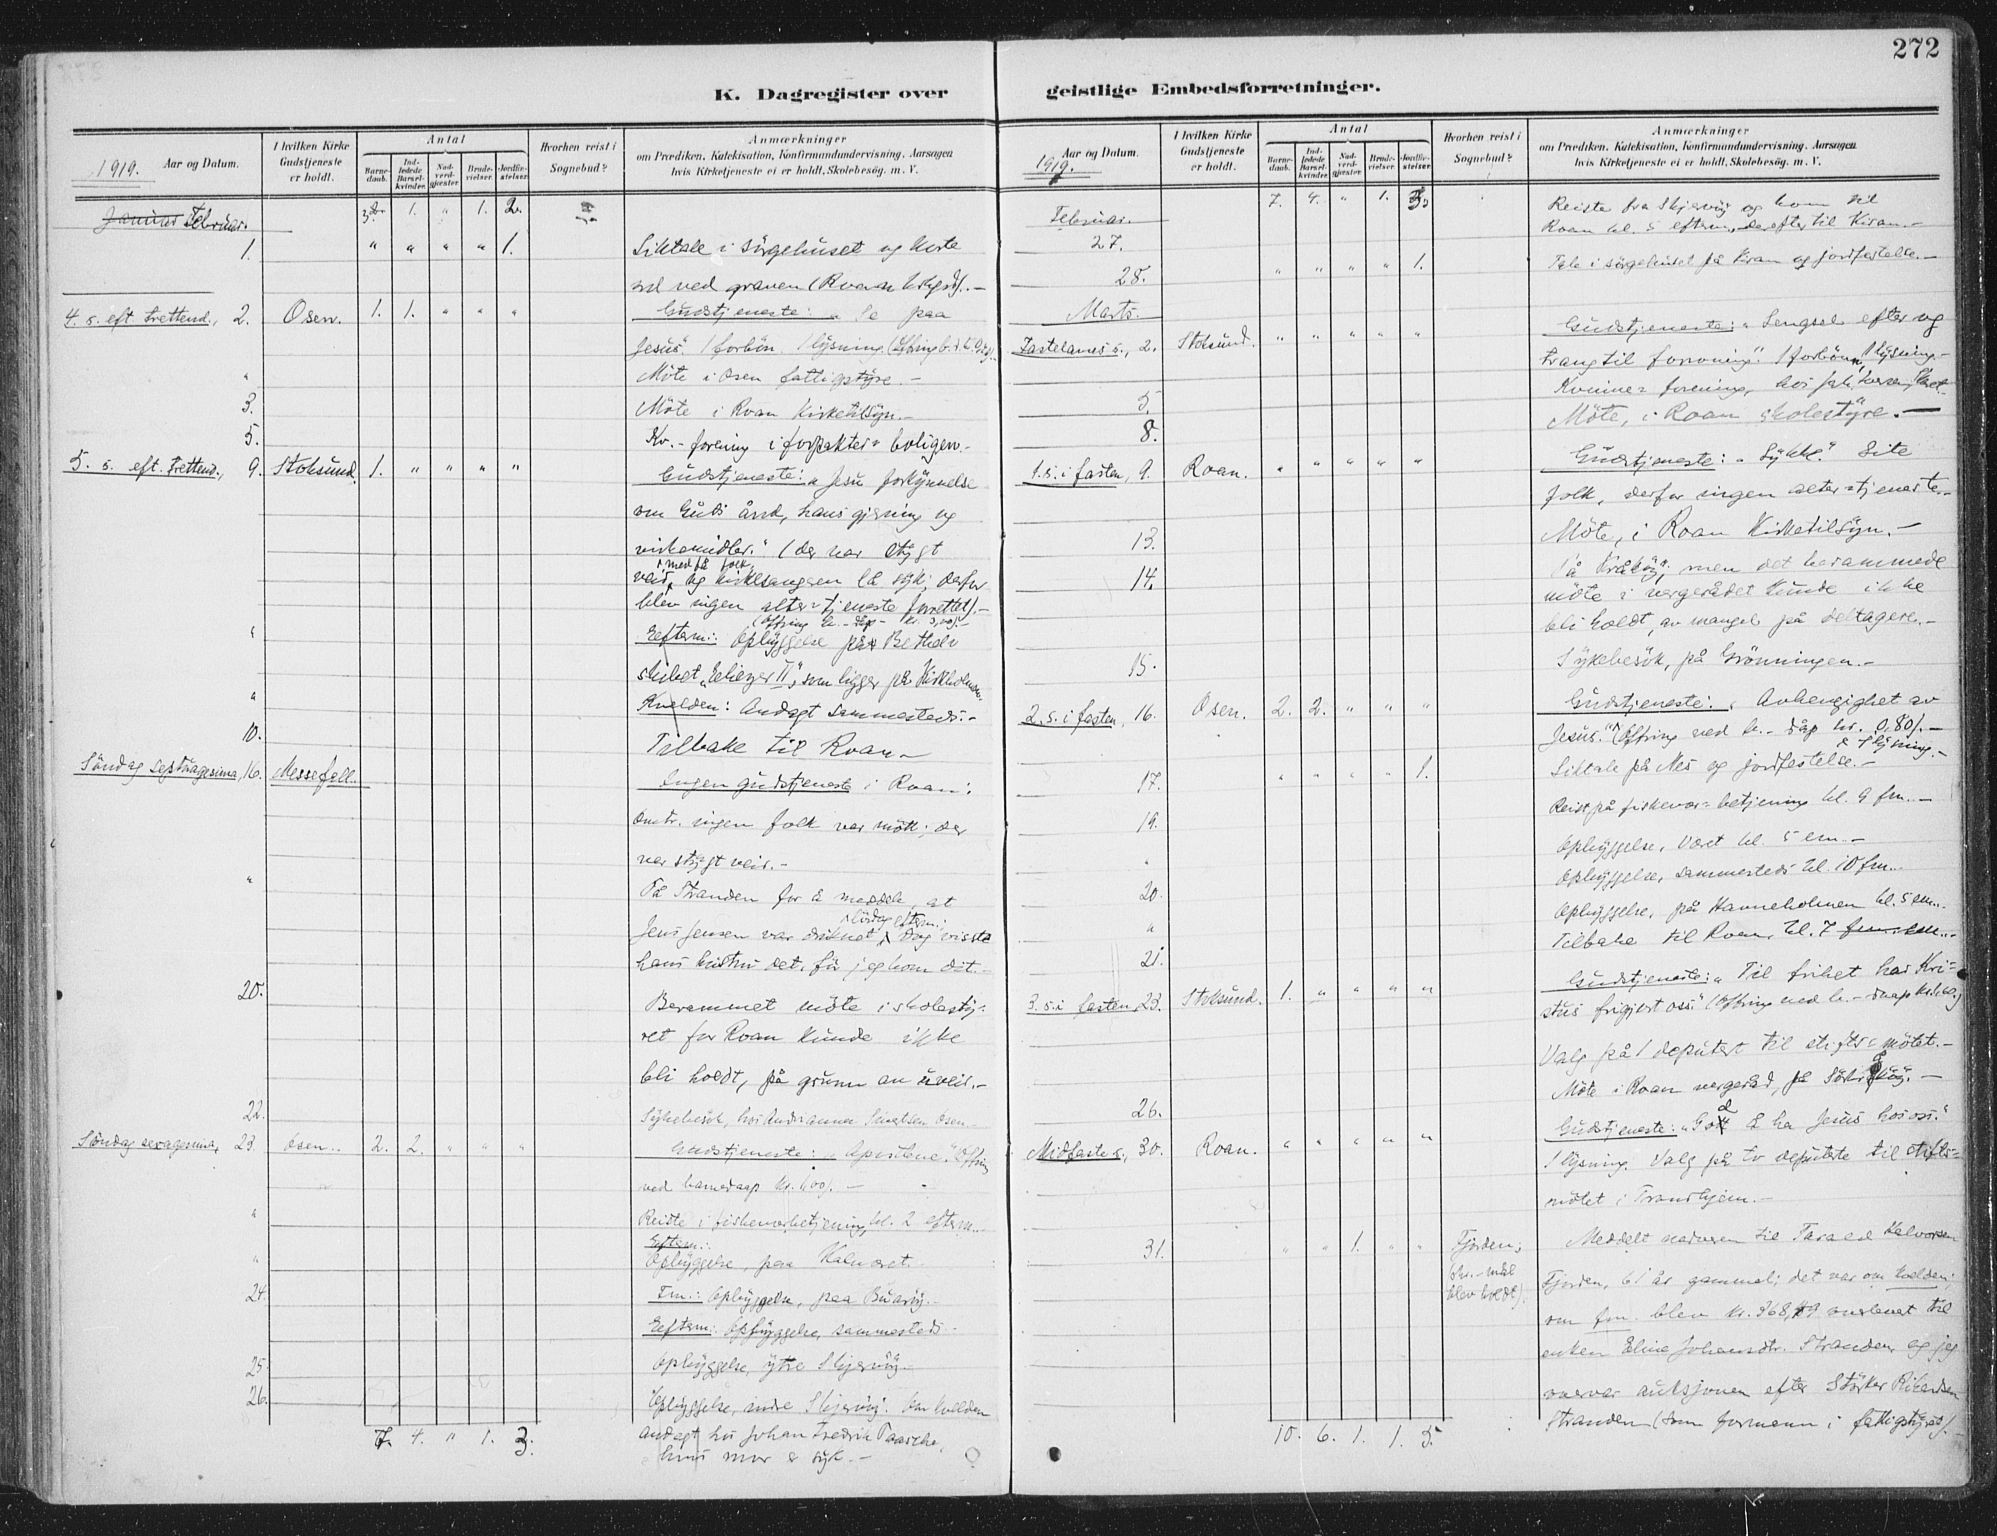 272
K. Dagregister over
1919. Aar og Datum.
I hvilken Kirke Gudstjeneste er holdt.
Antal
Barne-daab.
Ind-ledede Barsel-kvinder.
Nad-verd-gjæster.
Brude-vielser.
Jordfæ-stelser.
Hvorhen reist i Sognebud?
Anmærkninger
om Prædiken, Katekisation, Konfirmandundervisning. Aarsagen
hvis Kirketjeneste ei er holdt, Skolebesög. m. V.
Januar Februar. 1. " 1. 2.
1. " " " " 1. Liktale i sörgehuset og korte
ord ved graven (Roan
4. s. eft. trettend., 2. Osen. 1. 1. " " " Gudstjeneste: „Se paa
Jesus". 1 forbön. 1 lysning.
" Möte i Osen fattigstyre.-
3. Möte i Roan Kirketilsyn.-
5. Kv.-forening i forpakter-boligen.
5. s. eft. trettend., 9. Stoksund. 1. " " " " Gudstjeneste: „Jesu forkynnelse
om Guds ånd, hans gjerning og
virkemidler." (der var stygt
med få folk,
veir, og kirkesangeren lå syk; derfor
blev ingen alter-tjeneste forrettet).-
" Efterm.: Opbyggelse på Bethel-
skibet „Eliezer II", som ligger på Kirkholmen.
" Kvelden: Andagt sammesteds.-
10. Tilbake til Roan.-
Söndag septuagesima, 16. Messefall. Ingen gudstjeneste i Roan;
omtr. ingen folk var mött; der
var stygt veir.-
" På Stranden for å meddele, at
lördag efterm.
Jens Jensen var druknet, dog visste
hans hustru det, för jeg kom dit.-
20. Berammet möte i skolesty-
ret for Roan kunde ikke
bli holdt, på grunn av uveir.-
22. Sykebesök, hos Andrianna Osen.
Söndag sexagesima, 23. Osen. 2. 2. " " " Gudstjeneste: „Apostlene." Offring
ved barnedaap kr. 1,00). -
" Reiste i fiskeværbetjening, kl. 2 efterm.
" Efterm.:
Opbyggelse, paa Kalvøret.
24. Fm.: Opbyggelse, paa Buarøy.-
Efterm: Opbyggelse, sammesteds.-
25. Opbyggelse, ytre Skjervöy.-
26. Opbyggelse, indre Skjervöy. Om kvelden
andagt hos Johan Fredrik
hvis mor er syk.-
7. 4. " 1. 3.
geistlige Embedsforretninger.
Aar og Datum. 1919.
I hvilken Kirke Gudstjeneste er holdt.
Antal
Barne-daab.
Ind-ledede Barsel-kvinder.
Nad-verd-gjæster.
Brude-vielser.
Jordfæ-stelser.
Hvorhen reist i Sognebud?
Anmærkninger
om Prædiken, Katekisation, Konfirmandundervisning. Aarsagen
hvis Kirketjeneste ei er holdt, Skolebesög. m. V.
Februar. 7. 4. " 1. 3. Reiste fra Skjervöy og kom til
27. Roan kl. 5 efterm., derefter til Kiran.-
28. " " " " 1. Tale i sörgehuset på Kiran og jordfestelse.-
Marts.
Fastelavns s., 2. Stoksund. " " " " " Gudstjeneste: „Lengsel efter og
trang til forsoning". 1 forbön, 1 lysning.-
Kvinne-forening, hos
5. Möte, i Roan skolestyre.-
8.
1. s. i fasten, 9. Roan. " " " " " Gudstjeneste: „Sykke." Lite
folk, derfor ingen alter-tjeneste.-
13. Möte, i Roan Kirketilsyn.-
14. På Kråköy; men det berammede
möte i vergerådet kunde ikke
bli holdt, av mangel på deltagere.-
15. Sykebesök, på Grönningen.-
2. s. i fasten, 16. Osen. 2. 2. " " " Gudstjeneste: „Avhengighet av
Jesus." (Offring ved b.-dåp kr. 0,80).-
1 lysning.-
17. " " " " 1. Liktale på Nes og jordfestelse.-
19. Reist på fiskevær-betjening kl. 9 fm.-
" Opbyggelse, Været kl. 5 em.-
20. Opbyggelse, sammesteds kl. 10 fm.-
" Opbyggelse, på Hanneholmen kl. 5 em.-
21. Tilbake til Roan, kl. 7 fm.
3. s. i fasten, 23. Stoksund. 1. " " " " Gudstjeneste: „Til frihet har Kri-
stus frigjort oss." (Offring ved b.-daap
Valg på 1 deputert til stifts-mötet.-
26. Möte i Roan vergeråd, på
Midfaste s., 30. Roan. " " " " " Gudstjeneste: „Godt å ha Jesus hos oss."
1 lysning. Valg på to deputerte til stifts-
mötet i Trondhjem.-
31. " " 1. " " Fjorden; Meddelt nadveren til Halvorsen
(skr.-mål blev holdt). Fjorden, 61 år gammel; det var om kvelden;
om fm. blev kr. 368,49 overlevet til
enken Eline Johansdtr. Stranden, og jeg
overvar auksjonen efter Stranden (som formann i fattigstyret).
10. 6. 1. 1. 5.